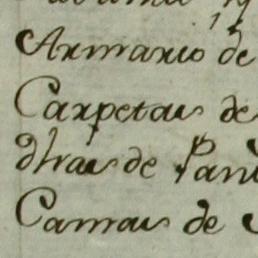 Armario de
Carpetas de
dhas de Pan
Camas de